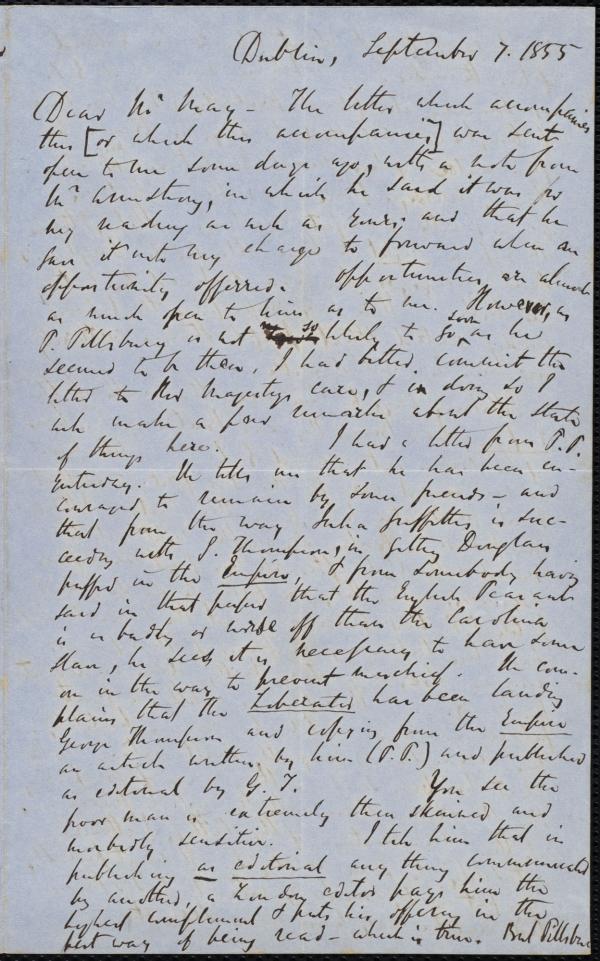 Dublin, September 7. 1855
Dear Mr May - The letter which accompanies
this [or which this accompanies] was sent
open to me some days ago, with a note from
Mr Armstrong, in which he said it was for
my reading as well as yours; and that he
gave it into my charge to forward when an
opportunity offered. opportunities are almost
as much open to him as to me. However, as
P. Pillsbury is not so likely to go soon as he
seemed to be then, I had better commit the
letter to Her Majesty's care, & in doing so I
will make a few remarks about the state
of things here. I had a letter from P.P.
yesterday. He tells me that he has been en-
couraged to remain by some friends - and
that from the way Julia Griffiths is suc-
ceeding with G. Thompson, in getting Douglass
puffed in the Empire, & from somebody having
said in that paper that the English Peasant
is as badly or worse off than the Carolina
slave, he sees it is necessary to have some
on in the way to prevent mischief. He com-
plains that the Liberator has been lauding
George Thompson and copying from the Empire
an article written by him (P.P.) and published
as editorial by G.T. You see the
poor man is extremely thin skinned and
morbidly sensitive. I tell him that in
publishing as editorial any thing communicated
by another, a London editor pays him the
highest compliment & puts his offering in the
best way of being read - which is true. But Pillsbury